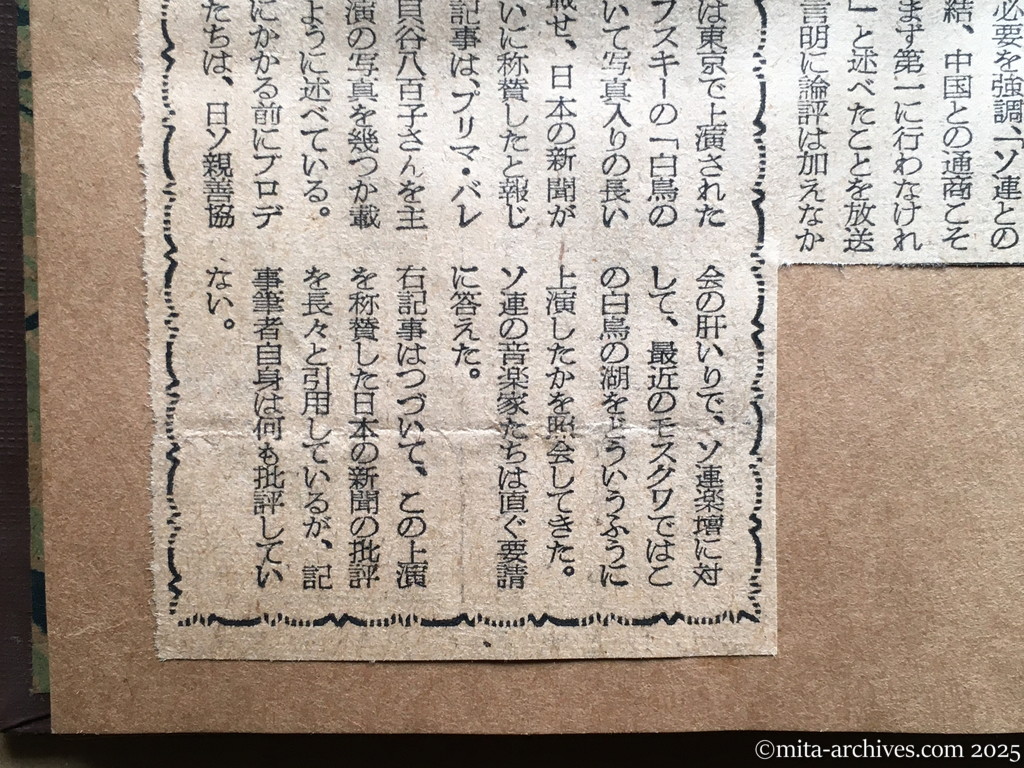 必要を強調、「ソ連との
結、中国との通商こそ
まず第一に行わなけれ
」と述べたことを放送
言明に論評は加えなか
は東京で上演された
フスキーの「白鳥の
いて写真入りの長い
載せ、日本の新聞が
いに称賛したと報じ
記事は、プリマ・バレ
貝谷八百子さんを主
演の写真を幾つか載
ように述べている。
にかかる前にプロデ
たちは、日ソ親善協
会の肝いりで、ソ連楽壇に対
して、最近のモスクワではこ
の白鳥の湖をどういうふうに
上演したかを照会してきた。
ソ連の音楽家たちは直ぐ要請
に答えた。
右記事はつづいて、この上演
を称賛した日本の新聞の批評
を長々と引用しているが、記
事筆者自身は何も批評してい
ない。
©mita-archives.com 2025